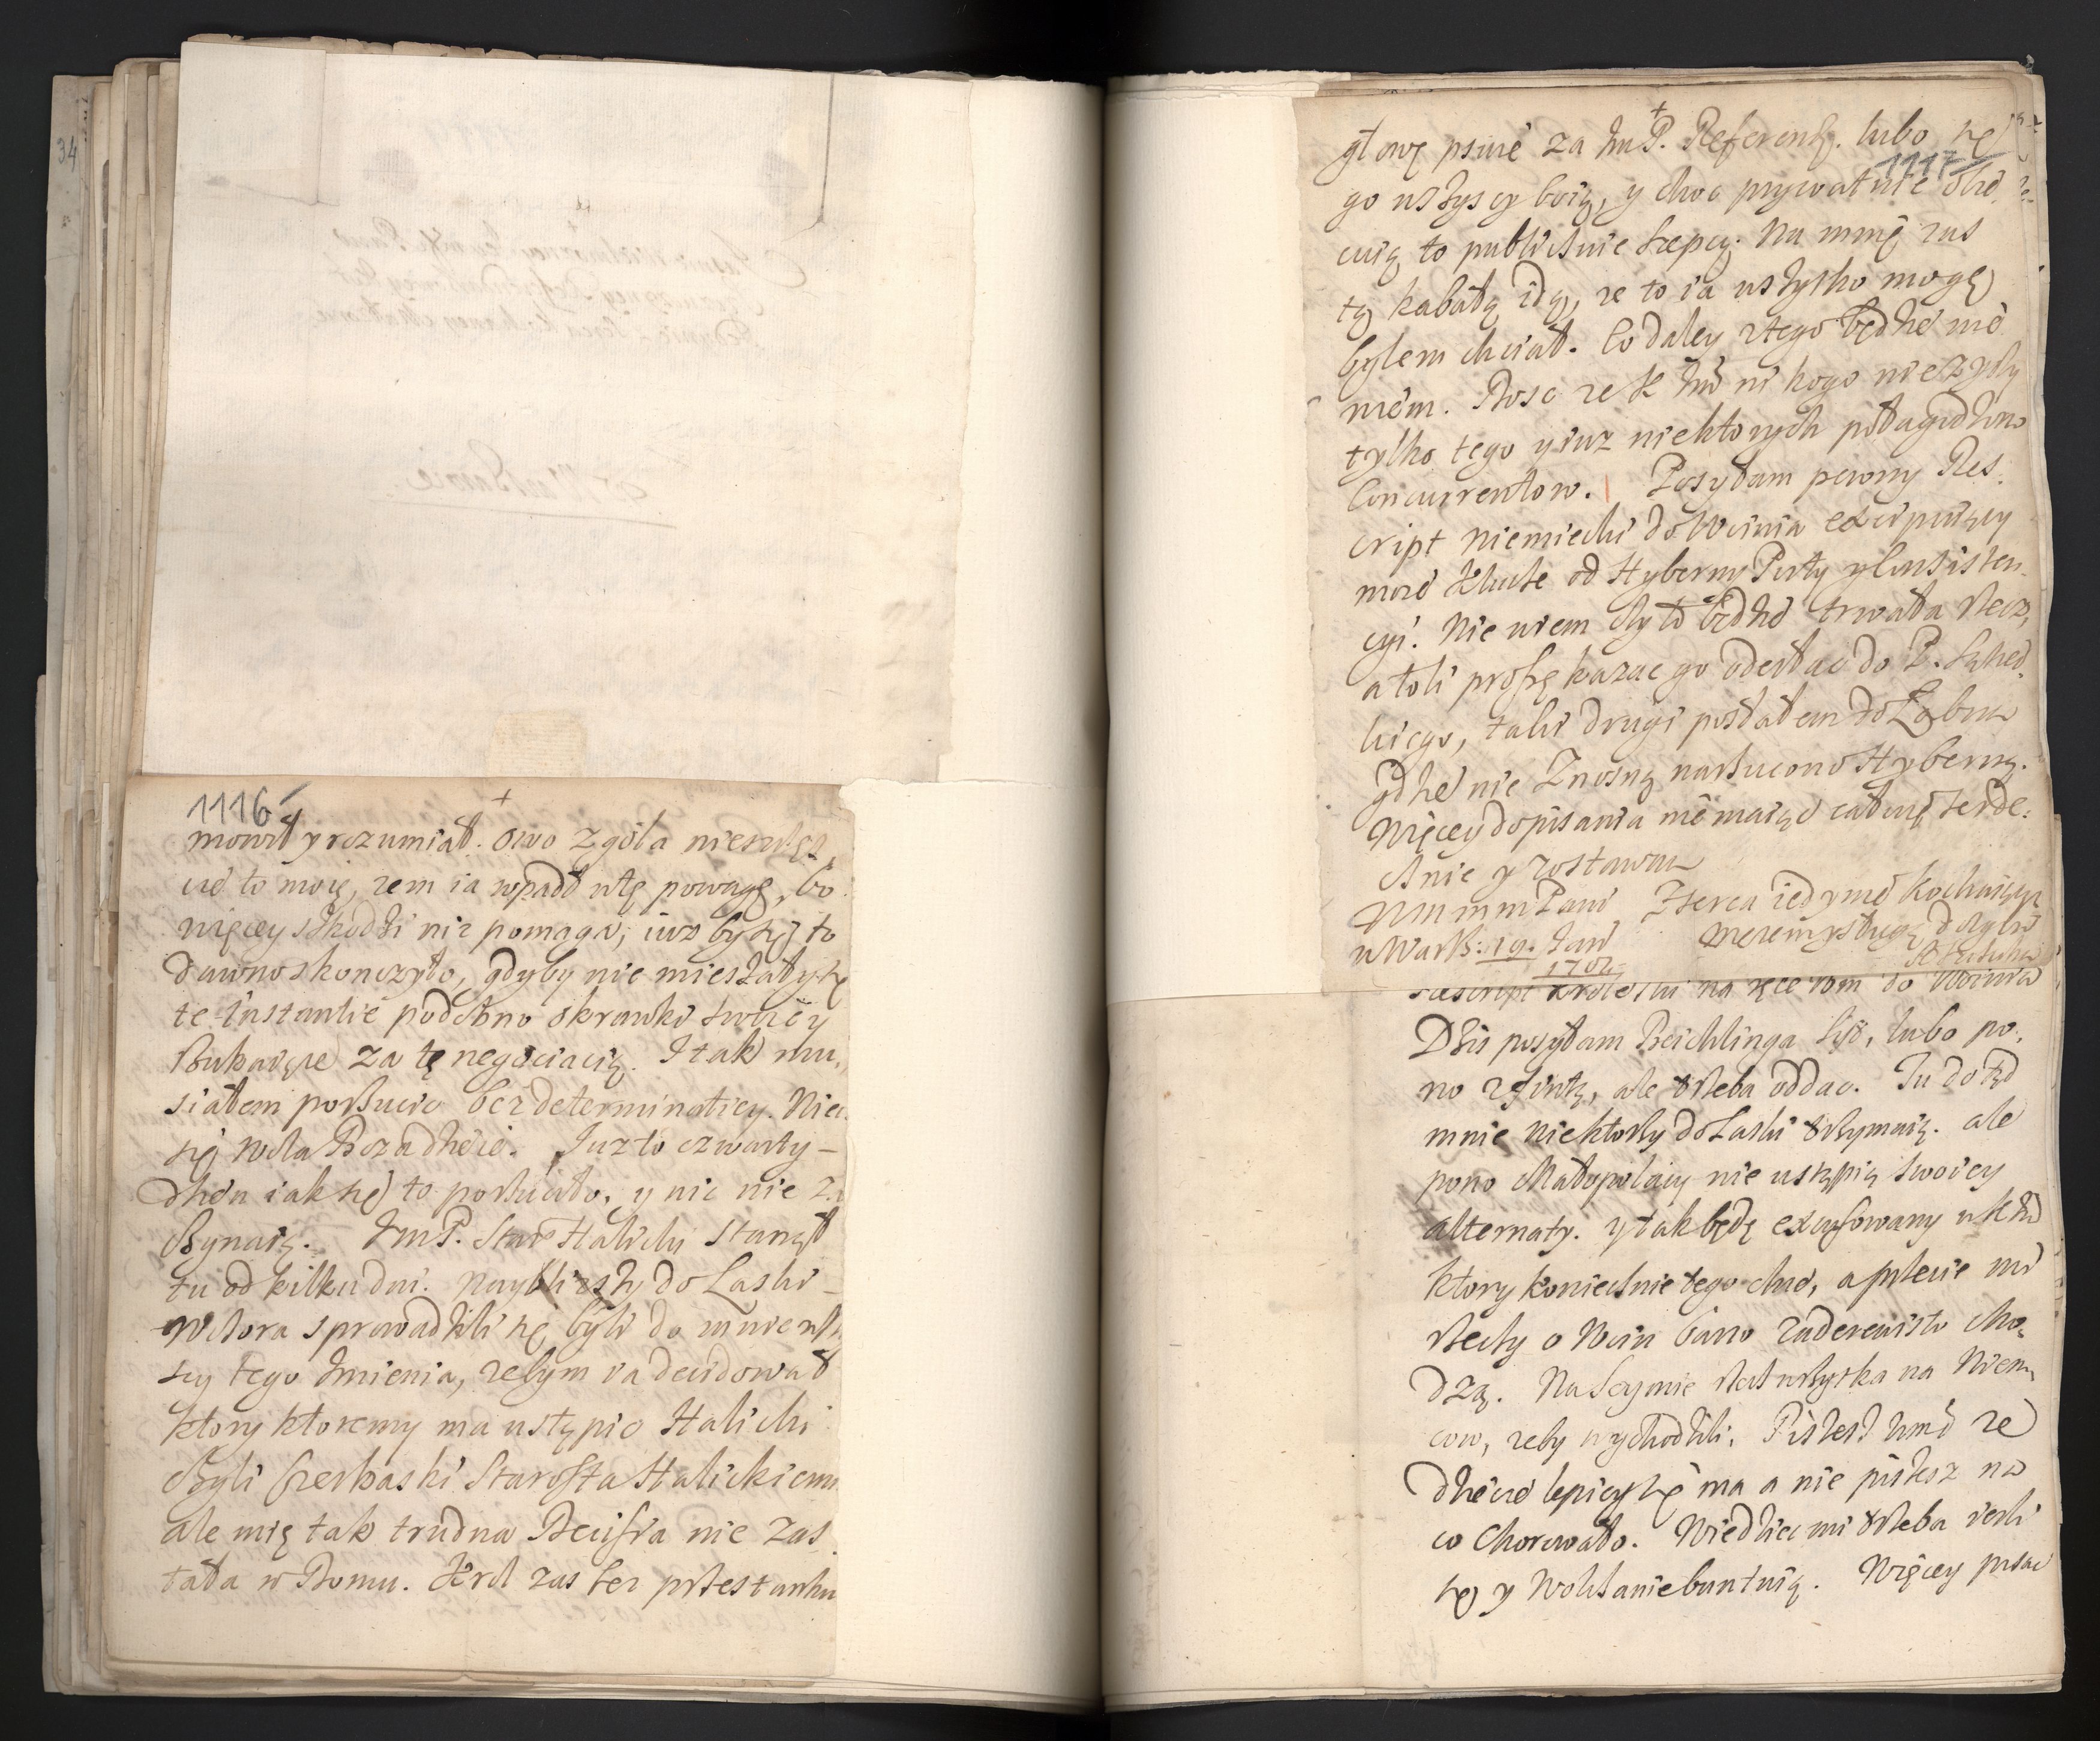 34
1116
+
mowił y rozumiał. owo zgoła
cie to moię, zem ia wpadł wtę powagę, bo
więcey szkodzi niz pomaga, iuz by się to
dawno skonczyło, gdyby nie mieszały się
te Instantie podobno skrawki swoiey
szukaiące za tę negociacią. I tak mu,
siałem porzucic bez determinatiey. Niec
się wola Boza dzieie. Juz to czwarty
dzien iak się to porzuciło, y nic nie
czynaią. Jm P. Star Halicki stanął
tu od kilku dni. Nayblizszy do Laski
Wczora sprowadzili się byli do mnie wszy
scy tego Imienia, zebym ia decidował
ktory ktoremu ma ustąpic Halicki
czyli Starosta Halickiemu
ale mię tak trudna Decisia nie zas
tała w Domu. Krol zas bez przestanku
+
głowę psuie za Jm P. Referend. lubo się
1117
go wszyscy boią, y choc prywatnie obie
cuią to publicznie szepcą. Na mnię zas
tę kabałę idą, ze to ia wszytko mogę
bylem chciał. Co daley z tego będzie nie
wiem. Dosc ze K Jmc ni kogo nie zyczy
tylko tego y iuz niektorych połagodzono
Concurrentow. Posyłam pewny Res
cript Niemiecki do Wcinia excipuiący
moie Klucze od Hyberny Porty y Consisten
cyi. Nie wiem czy to będzie trwała rzecz,
a toli proszę kazac go odesłac do P.
kiego, taki drugi posłałem do
gdzie nie znosną narzucono Hybernę.
Więcey do pisania nie maiąc całuię serde:
cznie y zostawam
Wm mm Pani Zserca iedynie kochaiący
w Warsz: 19. Jan
1702
Rescript Krolewski na ręce wm do Woinia
Dzis posyłam Beichlinga list, lubo po,
no ale trzeba oddac. Tu dotąd
mnie niektorzy do Laski trzymaią. ale
pono Małopolacy nie ustąpią swoiey
alternaty. y tak będę excusowany u K Jmci
ktory koniecznie tego chce, a przecie mi
rzeczy o Wcin barzo zaderewisto cho,
dzą. Na Seymie rzecz wszytka na Niem,
cow, zeby wychodzili. Piszesz wmc ze
dziecie lepiey się ma a nie piszesz na
co chorowało. Wiedziec mi trzeba iesli
się y Wolszanie buntuią. Więcey pisac